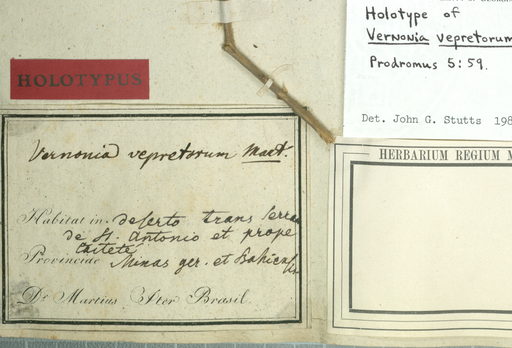 Holotype of
Vernonia vepretorum
Prodromus 5:59.
Det. John G. Stutts 198
HOLOTYPUS
HERBARIUM REGIUM M
Vernonia vepretorum Mart.
Habitat in deserto trans Serra
de St. Antonio et prope
Caiteté
Provinciae Minas ger. et Bahiens
Dr Martius Iter Brasil.